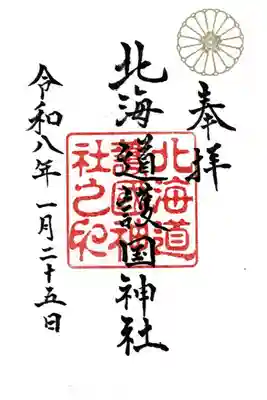 奉拝
北海道護国神社
北海道護國神社之印
令和八年一月二十五日